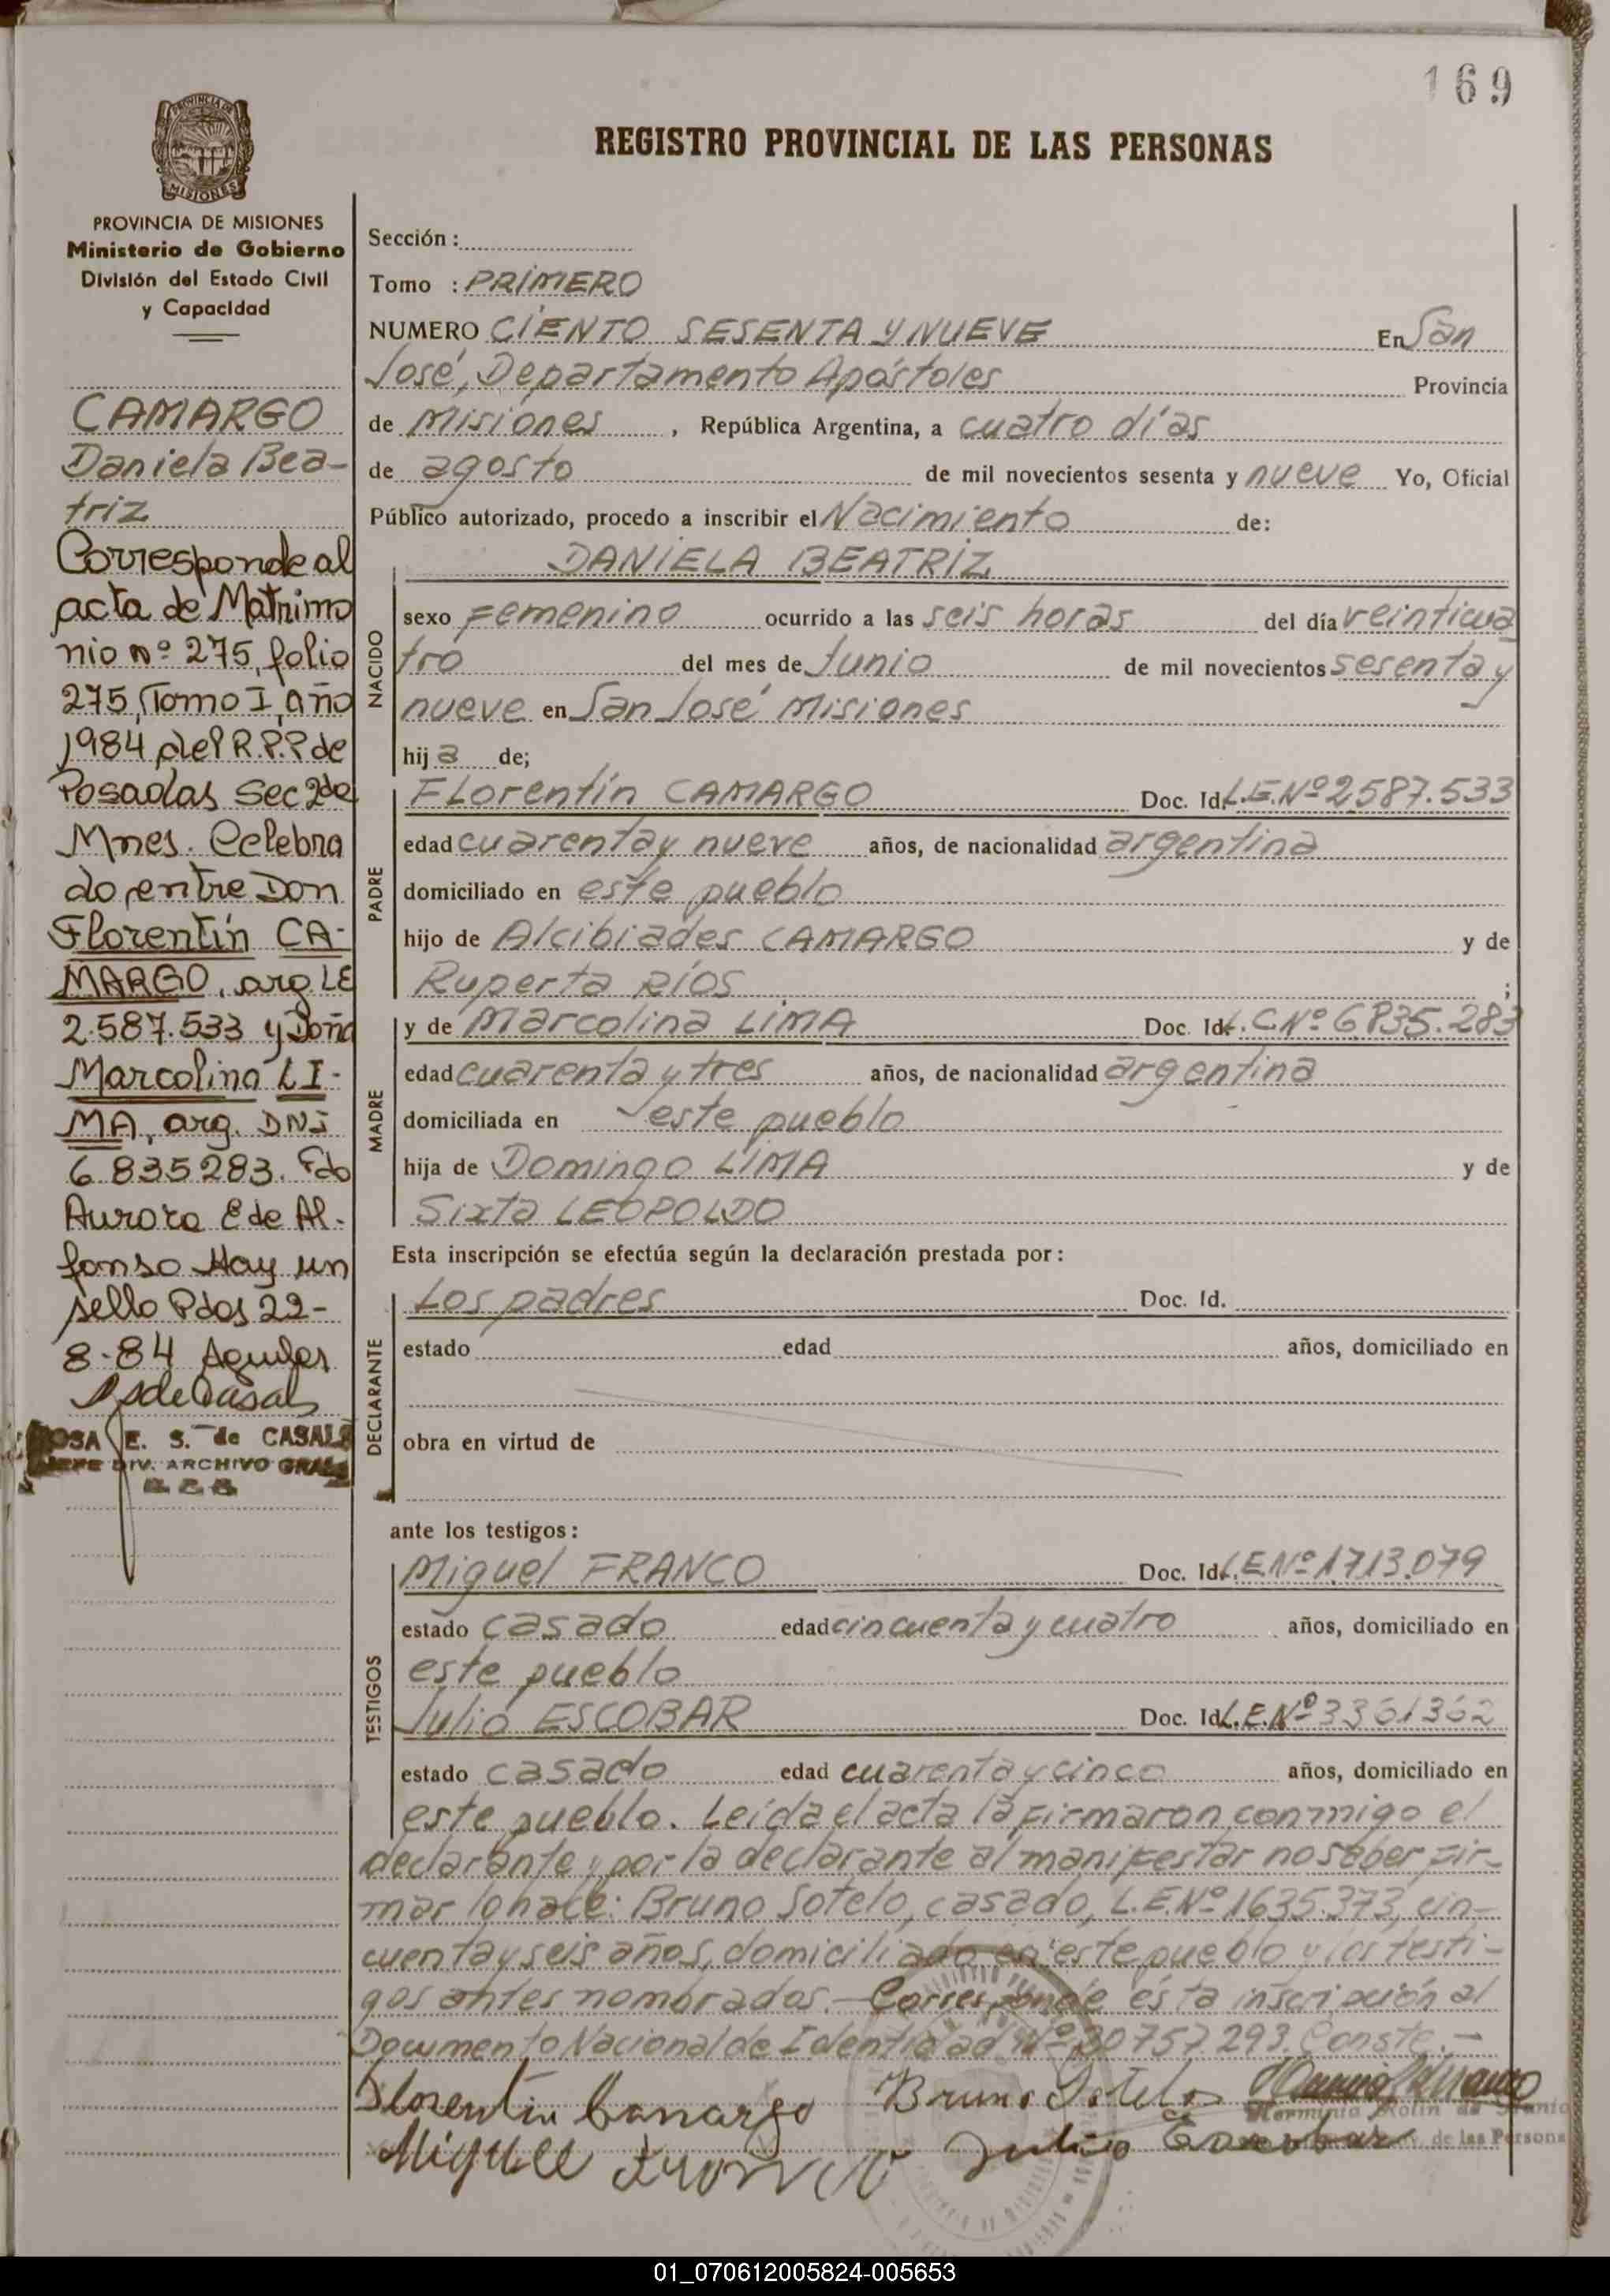 169
REGISTRO PROVINCIAL DE LAS PERSONAS
PROVINCIA DE MISIONES
PROVINCIA DE MISIONES
Ministerio de Gobierno
División del Estado Civil
y Capacidad
CAMARGO
Daniela Bea-
triz
Corresponde al
acta de Matrimo
nio nº 275, folio
275, Tomo I, año
1984 del R.P.P de
Posadas Sec 2da
Mnes. Celebra
do entre Don
Florentín CA-
MARGO, arg. LE
2.587.533 y Doña
Marcolina LI-
MA, arg. DNI
6.835283. Fdo
Aurora E de Al-
fonso Hay un
sello Pdas 22-
8-84
E. S. de CASALS
DIV. ARCHIVO GRAL
Sección :
Tomo : PRIMERO
NUMERO CIENTO SESENTA Y NUEVE En San
José, Departamento Apóstoles Provincia
de Misiones , República Argentina, a cuatro días
de agosto de mil novecientos sesenta y nueve Yo, Oficial
Público autorizado, procedo a inscribir el Nacimiento de:
DANIELA BEATRIZ
NACIDO
sexo Femenino ocurrido a las seis horas del día veinticua
tro del mes de Junio de mil novecientos sesenta y
nueve en San José Misiones
hija de;
PADRE
Florentín CAMARGO Doc. Id. L.E.Nº 2587.533
edad cuarenta y nueve años, de nacionalidad argentina
domiciliado en este pueblo
hijo de Alcibiades CAMARGO y de
Ruperta RÍOS ;
MADRE
y de Marcolina LIMA Doc. Id. L.C Nº 6835.283
edad cuarenta y tres años, de nacionalidad argentina
domiciliada en este pueblo
hija de Domingo LIMA y de
Sixta LEOPOLDO
Esta inscripción se efectúa según la declaración prestada por :
DECLARANTE
Los padres Doc. Id.
estado edad años, domiciliado en
obra en virtud de
ante los testigos :
TESTIGOS
Miguel FRANCO Doc. Id. L.E Nº 1.713.079
estado casado edad cincuenta y cuatro años, domiciliado en
este pueblo
Julio ESCOBAR Doc. Id. L.E.Nº 3361362
estado casado edad cuarenta y cinco años, domiciliado en
este pueblo. Leída el acta la firmaron conmigo el
declarante y por la declarante al manifestar no saber fir-
mar lo hace: Bruno Sotelo, casado, L.E.Nº 1.635.373, cin-
cuenta y seis años, domiciliado en este pueblo y los testi-
gos antes nombrados.- Corresponde ésta inscripción al
Documento Nacional de Identidad Nº 20757.293. Conste.-
Florentín Camargo Bruno Sotelo
Herminia Rolin de
Miguel Franco Julio Escobar de las Persona
01_070612005824-005653